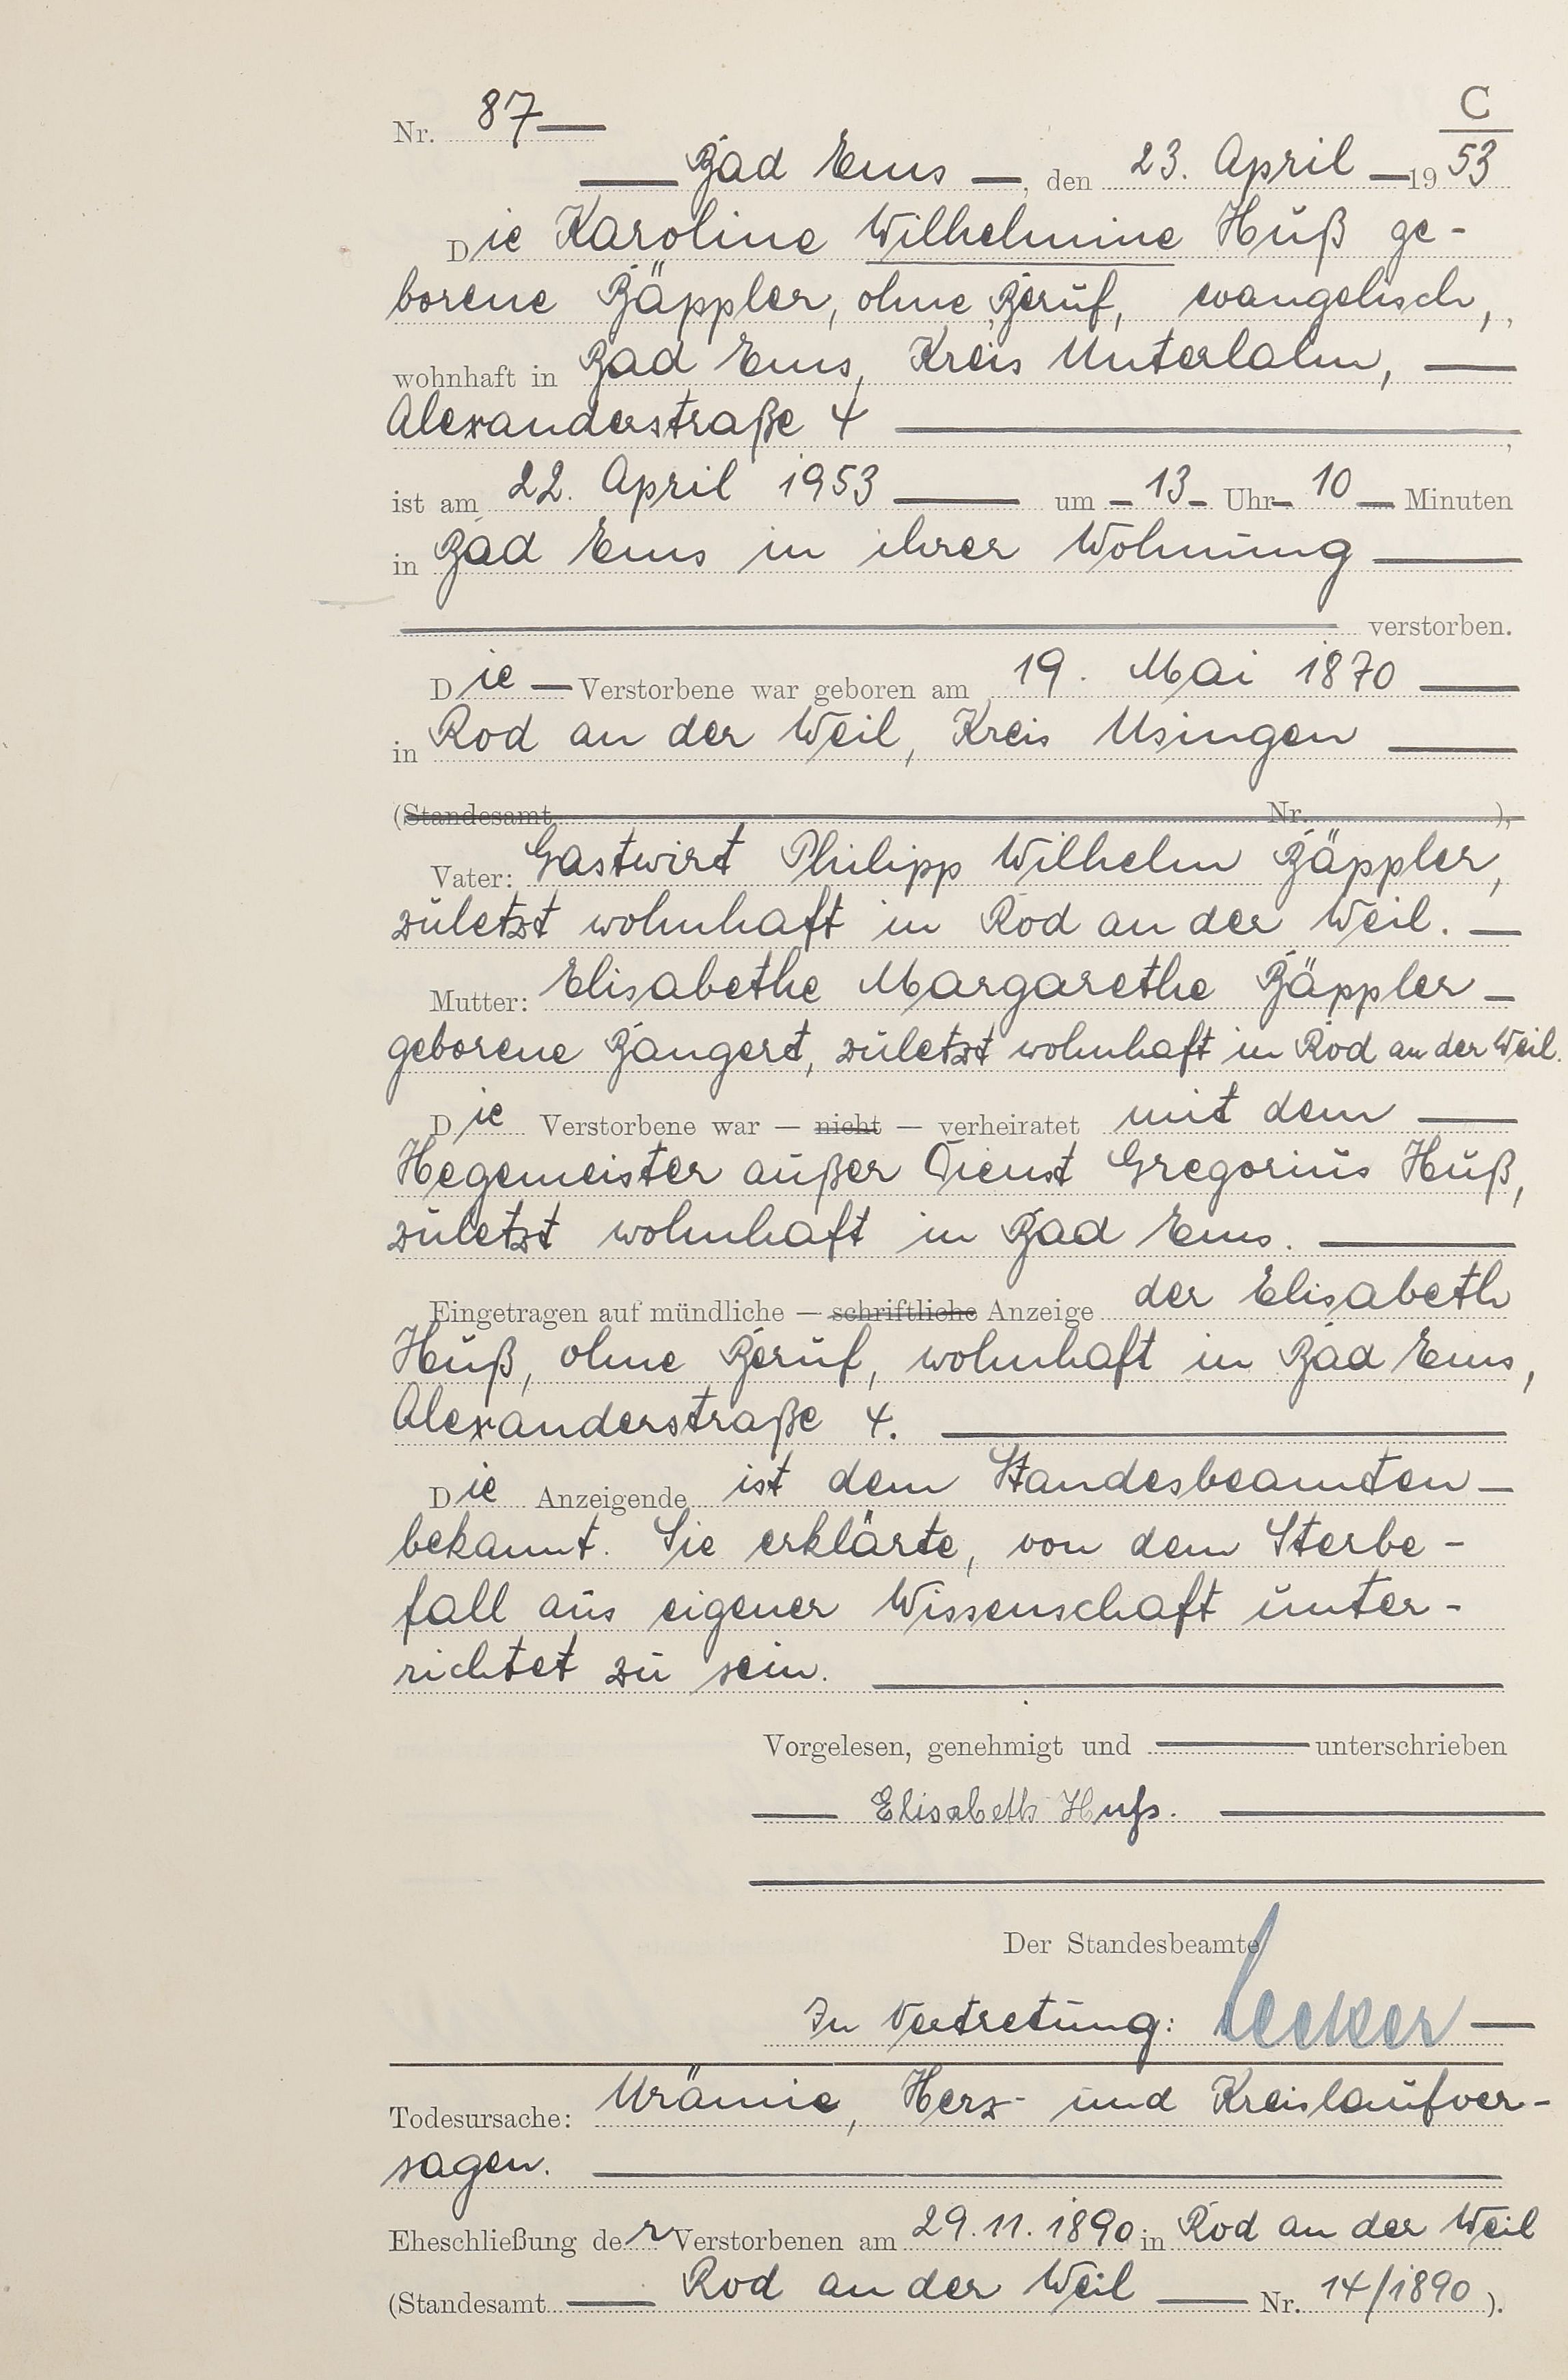 C
Nr. 87
Bad Ems, den 23. April 1953
Die Karoline Wilhelmine Huß ge-
borene Bäppler, ohne Beruf, evangelisch,
wohnhaft in Bad Ems, Kreis Unterlahn,
Alexanderstraße 4,
ist am 22. April 1953 um 13 Uhr 10 Minuten
in Bad Ems in ihrer Wohnung
verstorben.
Die Verstorbene war geboren am 19. Mai 1870
in Rod an der Weil, Kreis Usingen
(Standesamt Nr. ),
Vater: Gastwirt Philipp Wilhelm Bäppler,
zuletzt wohnhaft in Rod an der Weil.
Mutter: Elisabethe Margarethe Bäppler
geborene Bangert, zuletzt wohnhaft in Rod an der Weil.
Die Verstorbene war — nicht — verheiratet mit dem
Hegemeister außer Dienst Gregorius Huß,
zuletzt wohnhaft in Bad Ems.
Eingetragen auf mündliche — schriftliche Anzeige der Elisabeth
Huß, ohne Beruf, wohnhaft in Bad Ems,
Alexanderstraße 4.
Die Anzeigende ist dem Standesbeamten
bekannt. Sie erklärte, von dem Sterbe-
fall aus eigener Wissenschaft unter-
richtet zu sein.
Vorgelesen, genehmigt und unterschrieben
Elisabeth Huß.
Der Standesbeamte
In Vertretung:
Todesursache: Urämie, Herz- und Kreislaufver-
sagen.
Eheschließung der Verstorbenen am 29.11.1890 in Rod an der Weil
(Standesamt Rod an der Weil Nr. 14/1890).